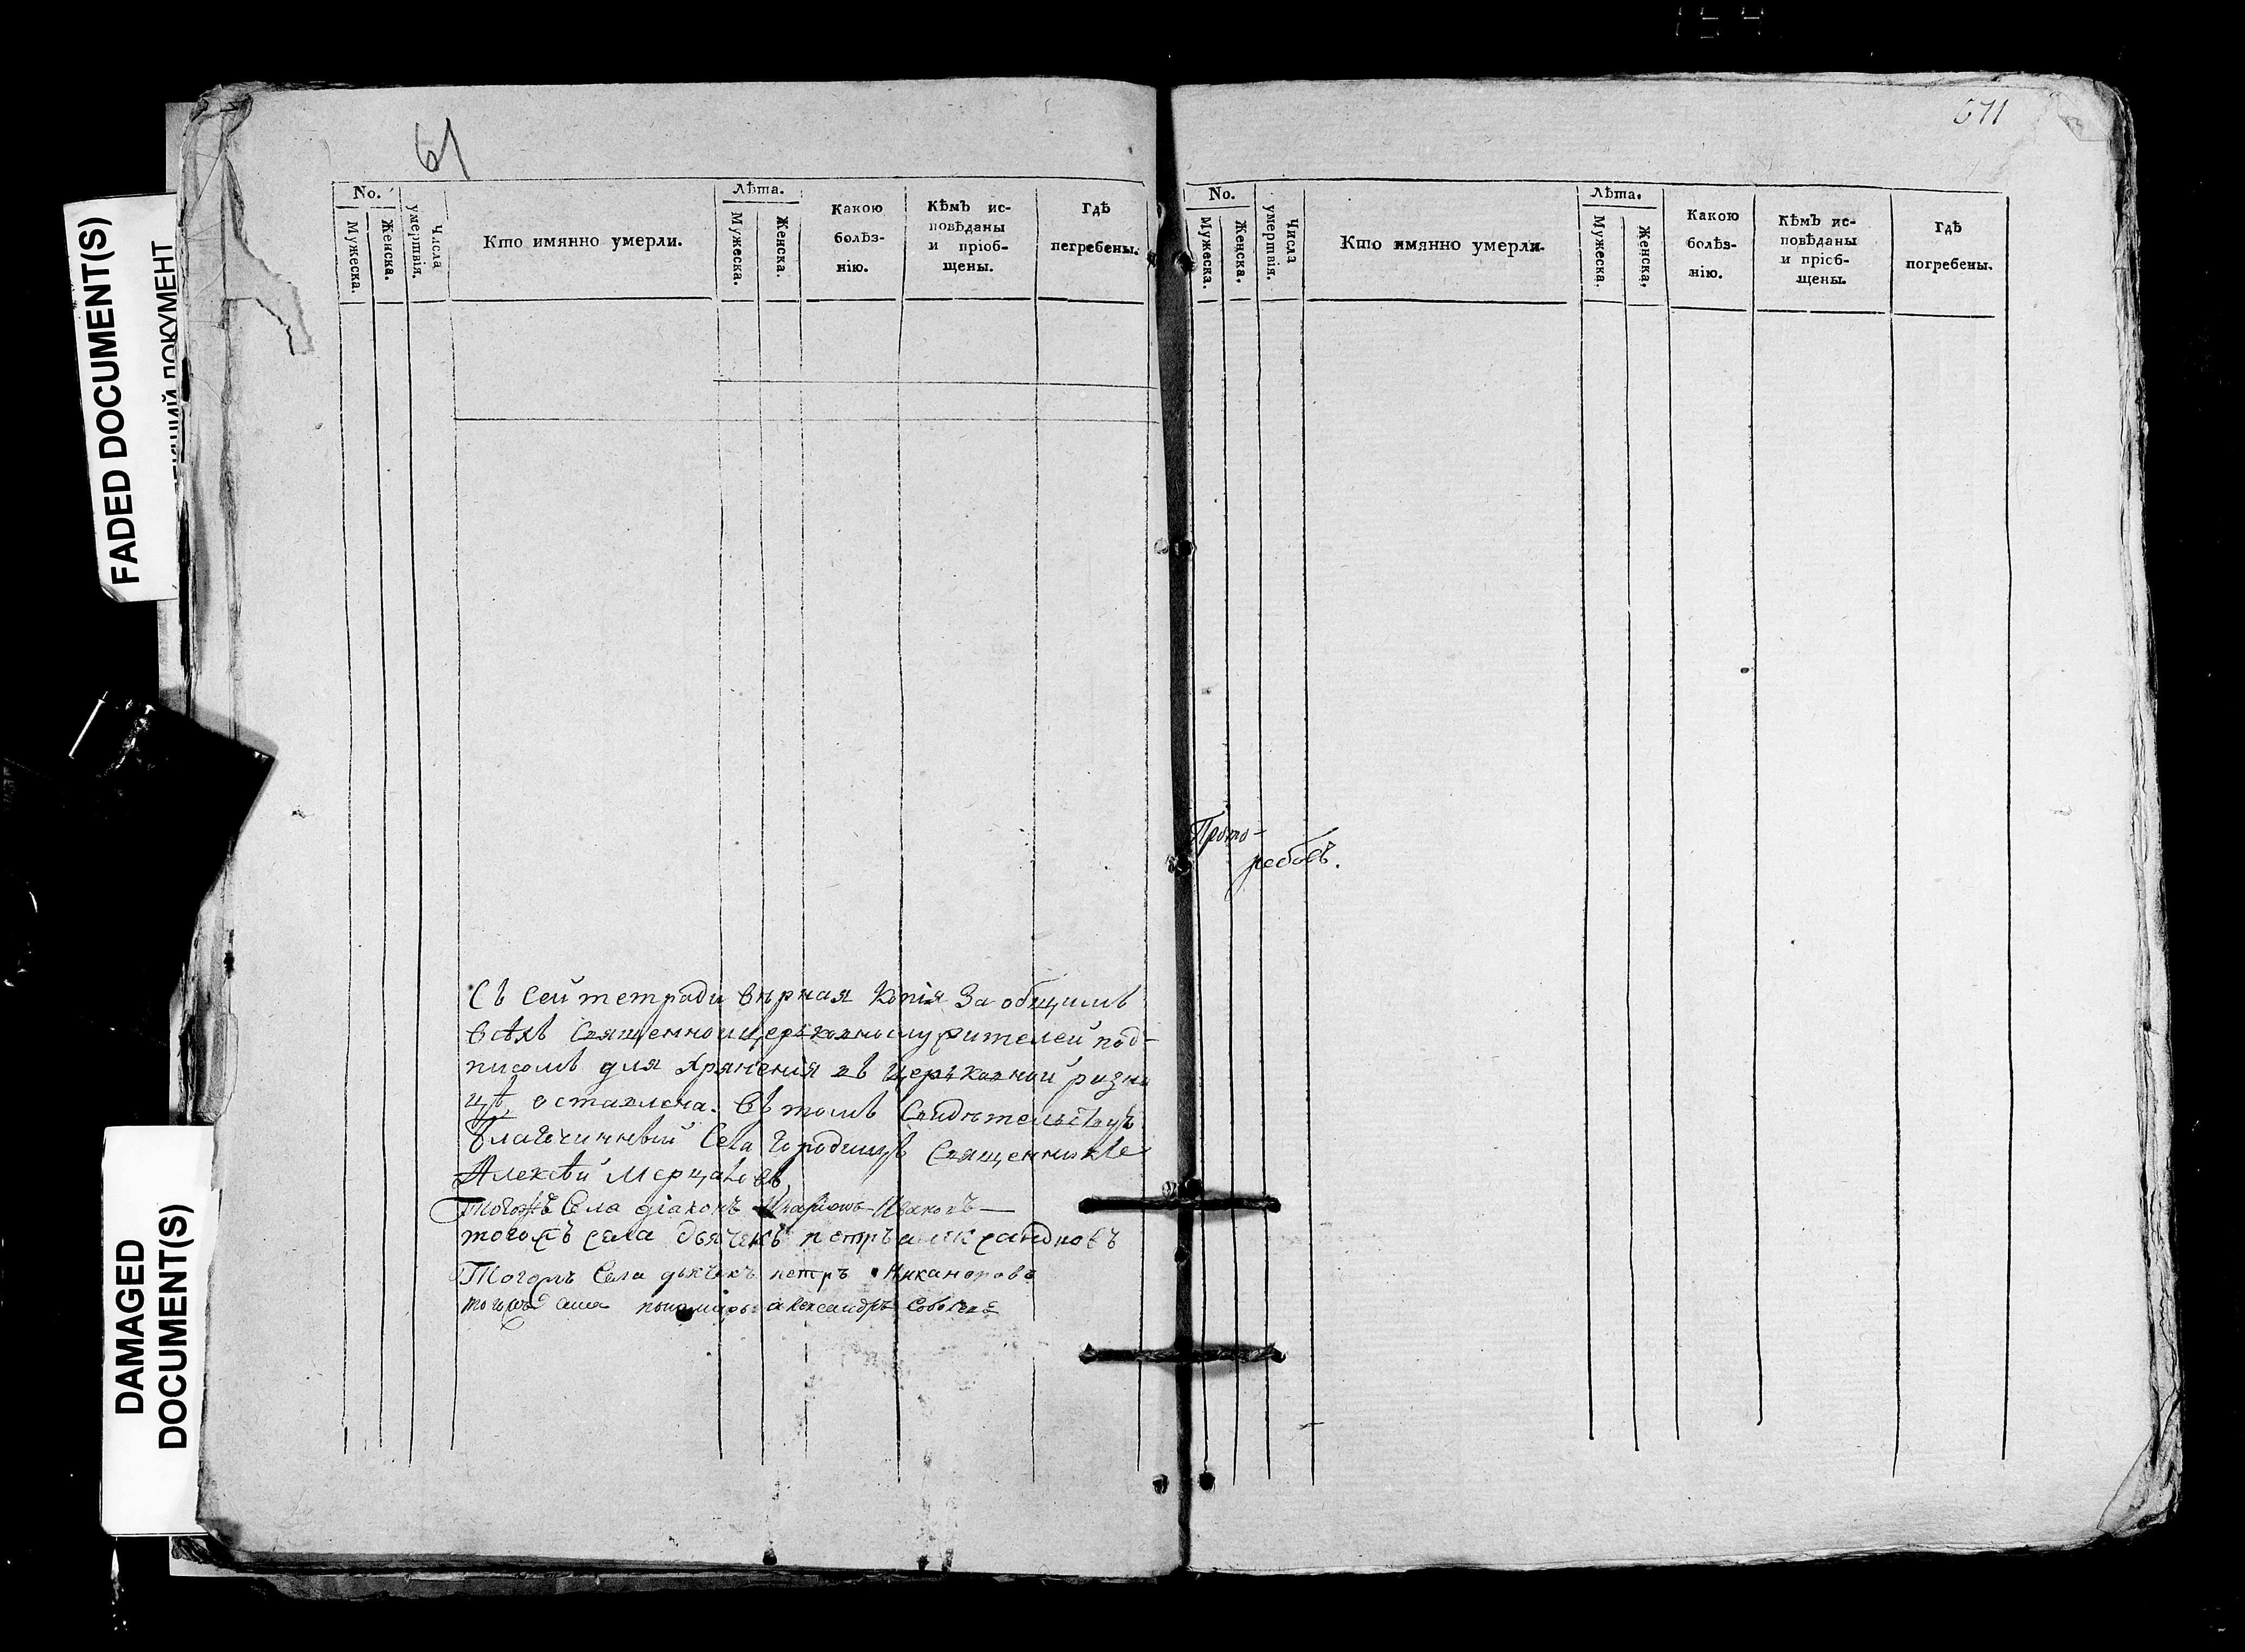 154
FADED DOCUMENT(S)
ДОКУМЕНТ
DAMAGED
DOCUMENT(S)
61
No.
Мужеска.
Женска.
Числа
умертвія.
Кто имянно умерли.
Лѣта.
Мужеска.
Женска.
Какою
болѣз-
нію.
Кѣмъ ис-
повѣданы
и пріоб-
щены.
Гдѣ
погребены.
Съ сей тетради вѣрная копія За общимъ
всѣхъ Священноицерковнослужителей под-
писомъ для хранения въ Церковной ризни
цѣ оставлена. Въ томъ Свидѣтельствуетъ
Благочинный Села Городищъ Священникъ
Алексѣй Мерцаловъ
Тогожъ Села діаконъ Ивановъ
тогожъ села дьячекъ петръ александровъ
Тогожъ Села дьячекъ петръ Никаноровъ
тогожъ села пономарь александръ Соболевъ
571
No.
Мужеска.
Женска.
Числа
умертвія.
Кто имянно умерли.
Лѣта.
Мужеска.
Женска.
Какою
болѣз-
нію.
Кѣмъ ис-
повѣданы
и пріоб-
щены.
Гдѣ
погребены.
Прото-